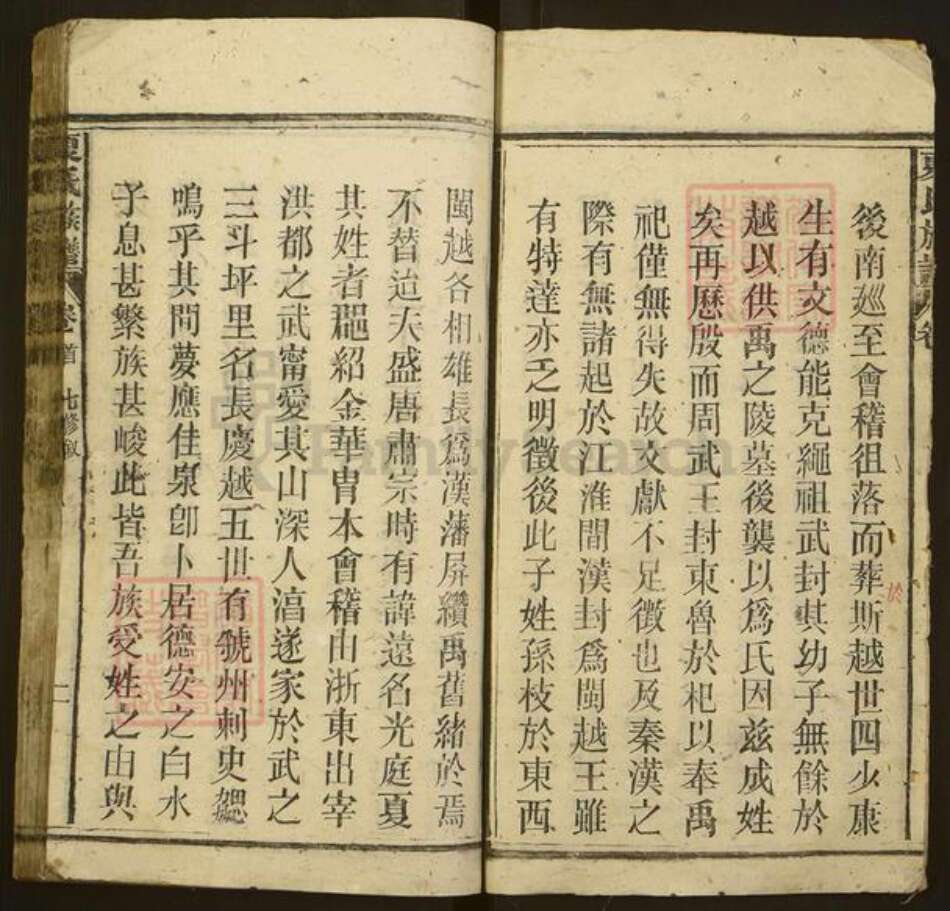 夏氏族譜 卷
後南廵至會稽徂落而葬斯越世四少康
生有文德能克繩祖武封其幼子無餘於
越以供禹之陵墓後襲以爲氏因兹成姓
矣再歷殷而周武王封東魯於杞以奉禹
祀僅無得失故文獻不足徵也及秦漢之
際有無諸起於江淮間漢封爲閩越王雖
有特達亦乏明徵後此子姓孫枝於東西
於
閩越各相雄長爲漢藩屏纘禹舊緒於焉
不替迨天盛唐肅宗時有諱遠名光庭夏
其姓者郡紹金華胄本會稽由浙東出宰
洪都之武甯愛其山深人湻遂家於武之
三斗坪里名長慶越五世有虢州刺史勰
鳴乎其間夢應佳泉卽卜居德安之白水
子息甚繁族甚峻此皆吾族受姓之由與
夏氏族譜 卷首 七修敘 二
FamilySearch